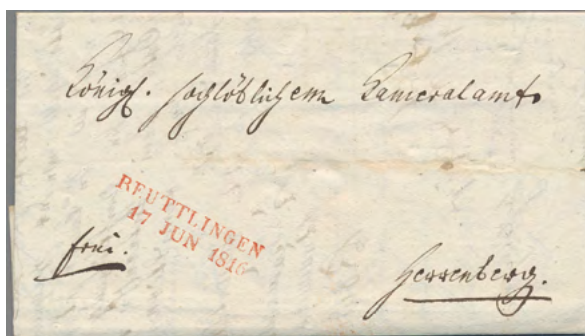 Königl. hochlöblichem Kameralamte
REUTTLINGEN
17 JUN 1816
frei.
Herrenberg.